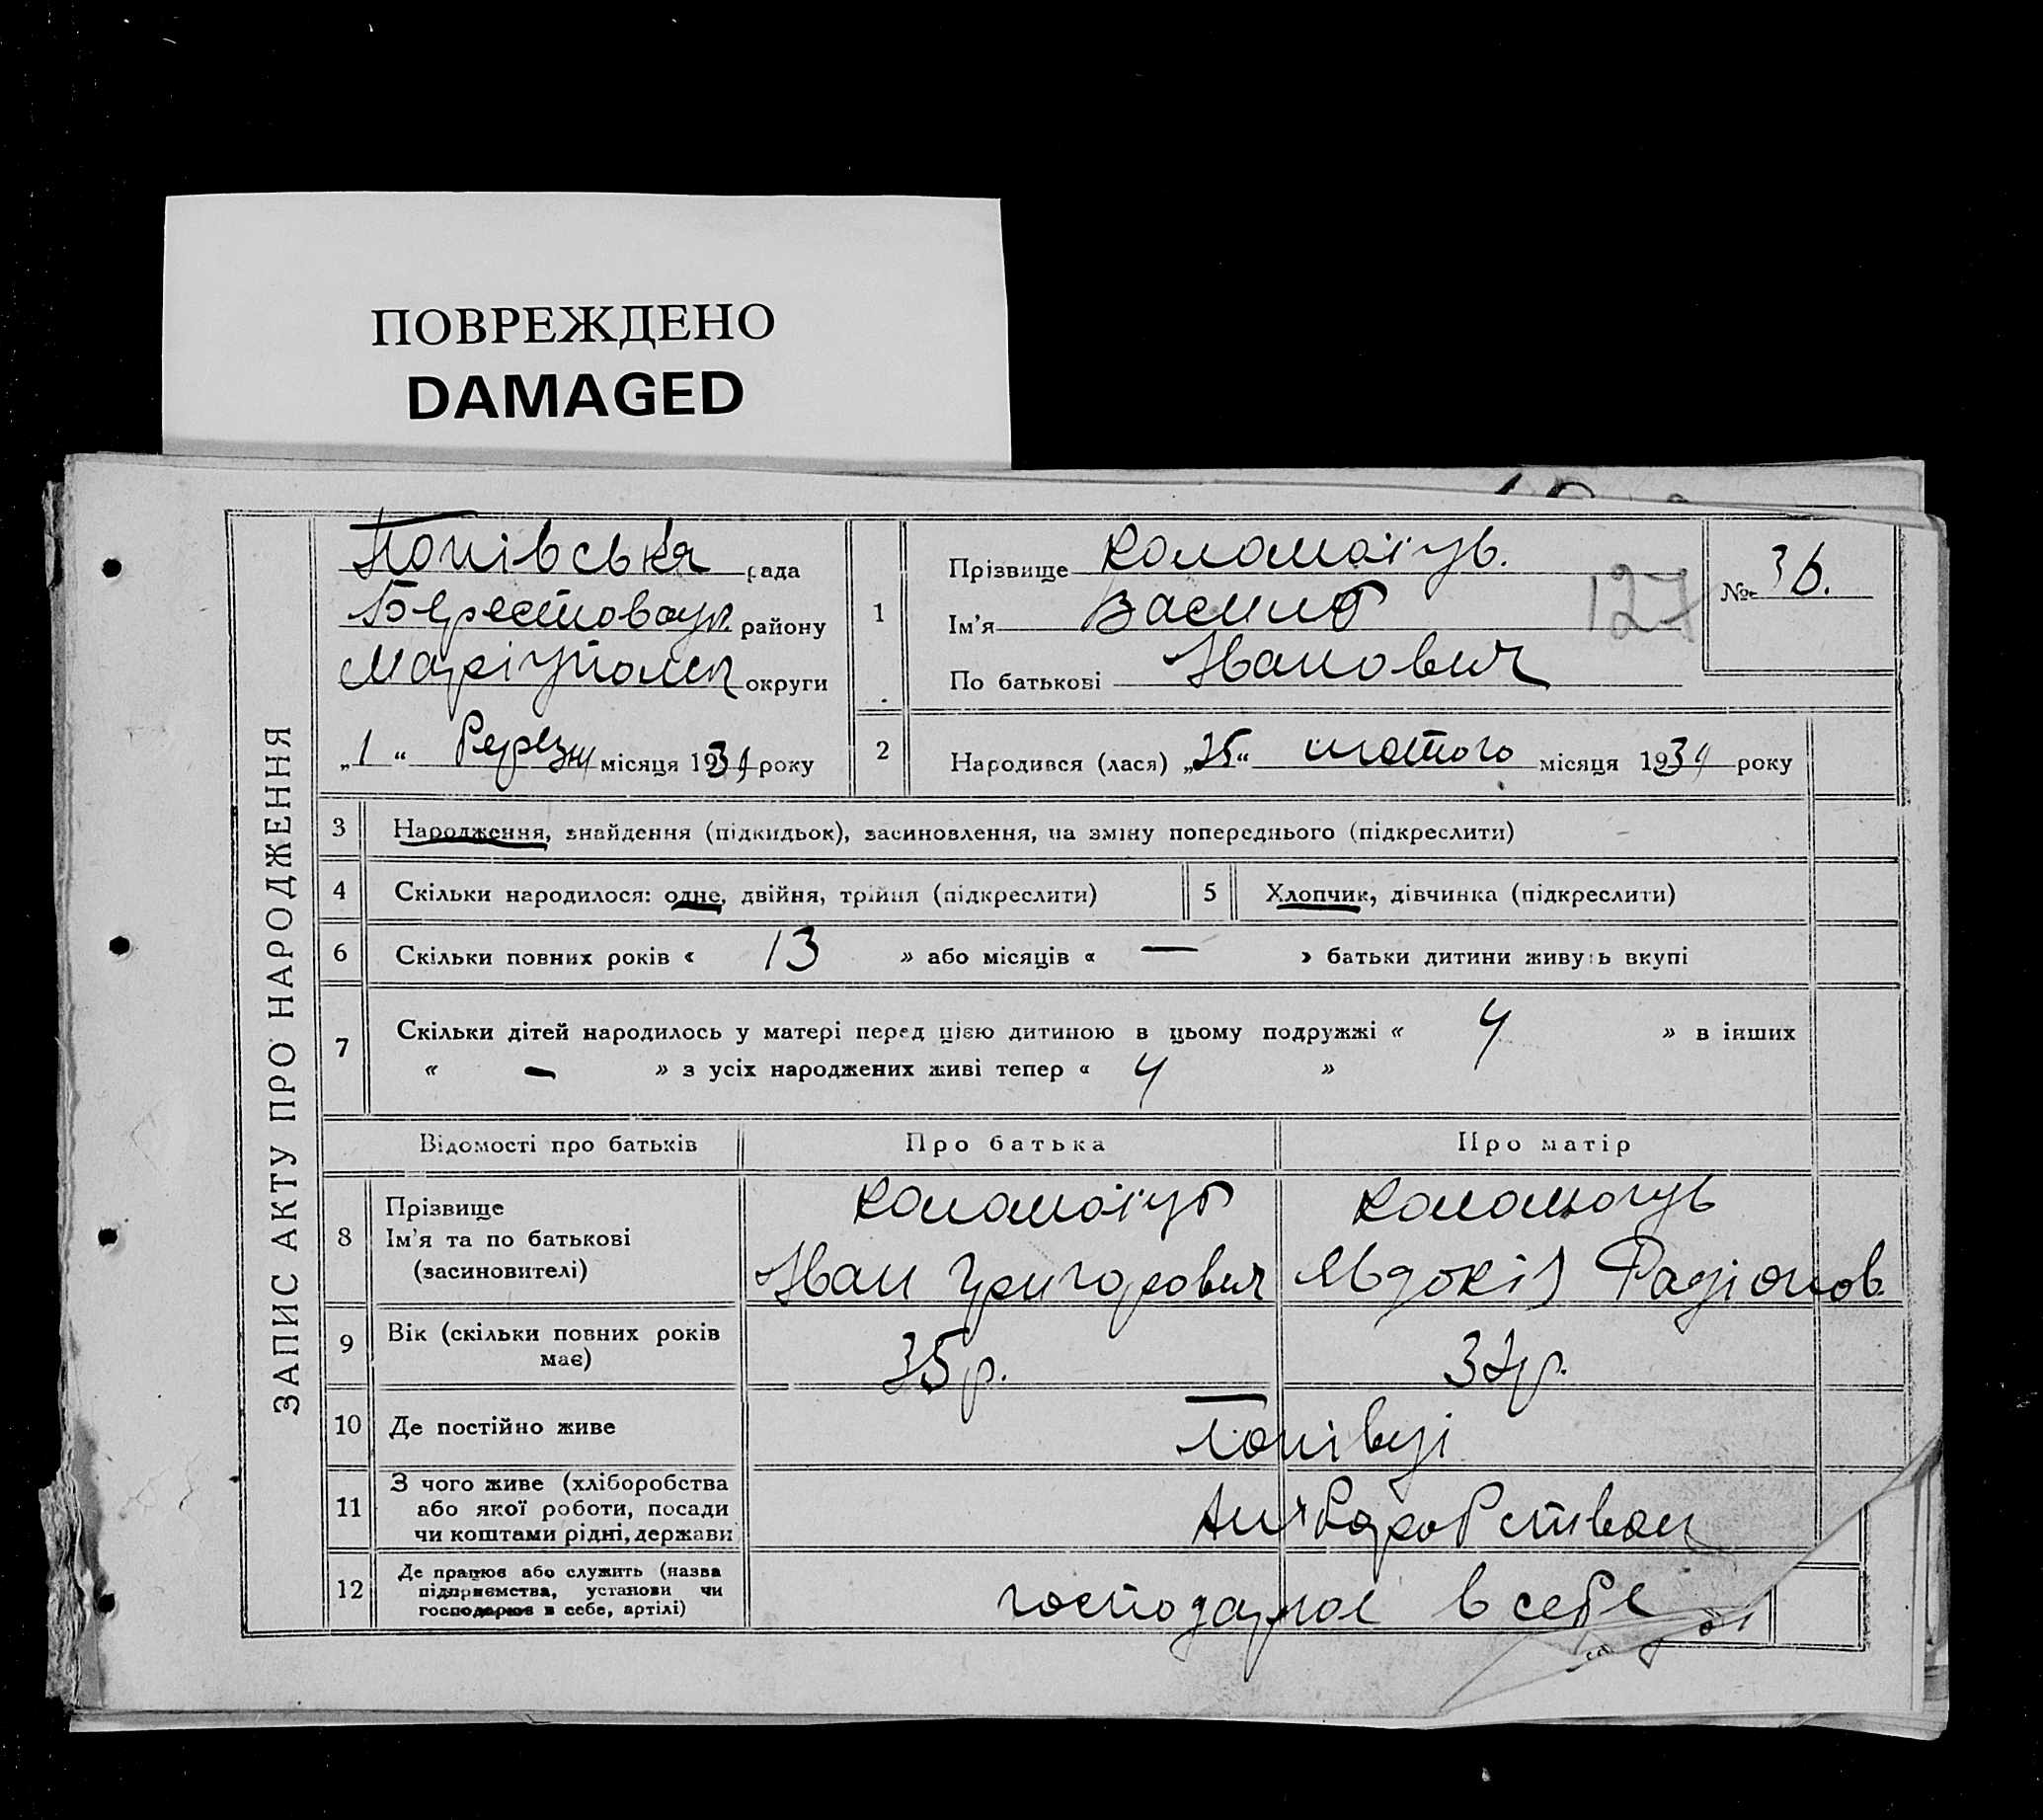 ПОВРЕЖДЕНО
DAMAGED
ЗАПИС АКТУ ПРО НАРОДЖЕННЯ
Попівська рада
Берестовецьк. району
Маріупольск округи
„1“ березня місяця 193 року
1
Прізвище Коломоїць.
Ім'я Василь
По батькові Іванович
127
№ 36.
2
Народився (лася) „25“ лютого місяця 193 року
3 Народження, знайдення (підкидьок), засиновлення, на зміну попереднього (підкреслити)
4 Скільки народилося: одне, двійня, трійня (підкреслити) 5 Хлопчик, дівчинка (підкреслити)
6 Скільки повних років « 13 » або місяців « — » батьки дитини живуть вкупі
7 Скільки дітей народилось у матері перед цією дитиною в цьому подружжі « 4 » в інших
« — » з усіх народжених живі тепер « 4 »
Відомості про батьків Про батька Про матір
8
Прізвище
Ім'я та по батькові
(засиновителі)
Коломоїць
Іван Григорович
Коломоєць
Явдокія Радіонов.
9 Вік (скільки повних років
має)
35 р. 32 р.
10 Де постійно живе Попівці
11
З чого живе (хліборобства
або якої роботи, посади
чи коштами рідні, держави
12
Де працює або служить (назва
підприємства, установи чи
господарює в себе, артілі)
господарює в себе